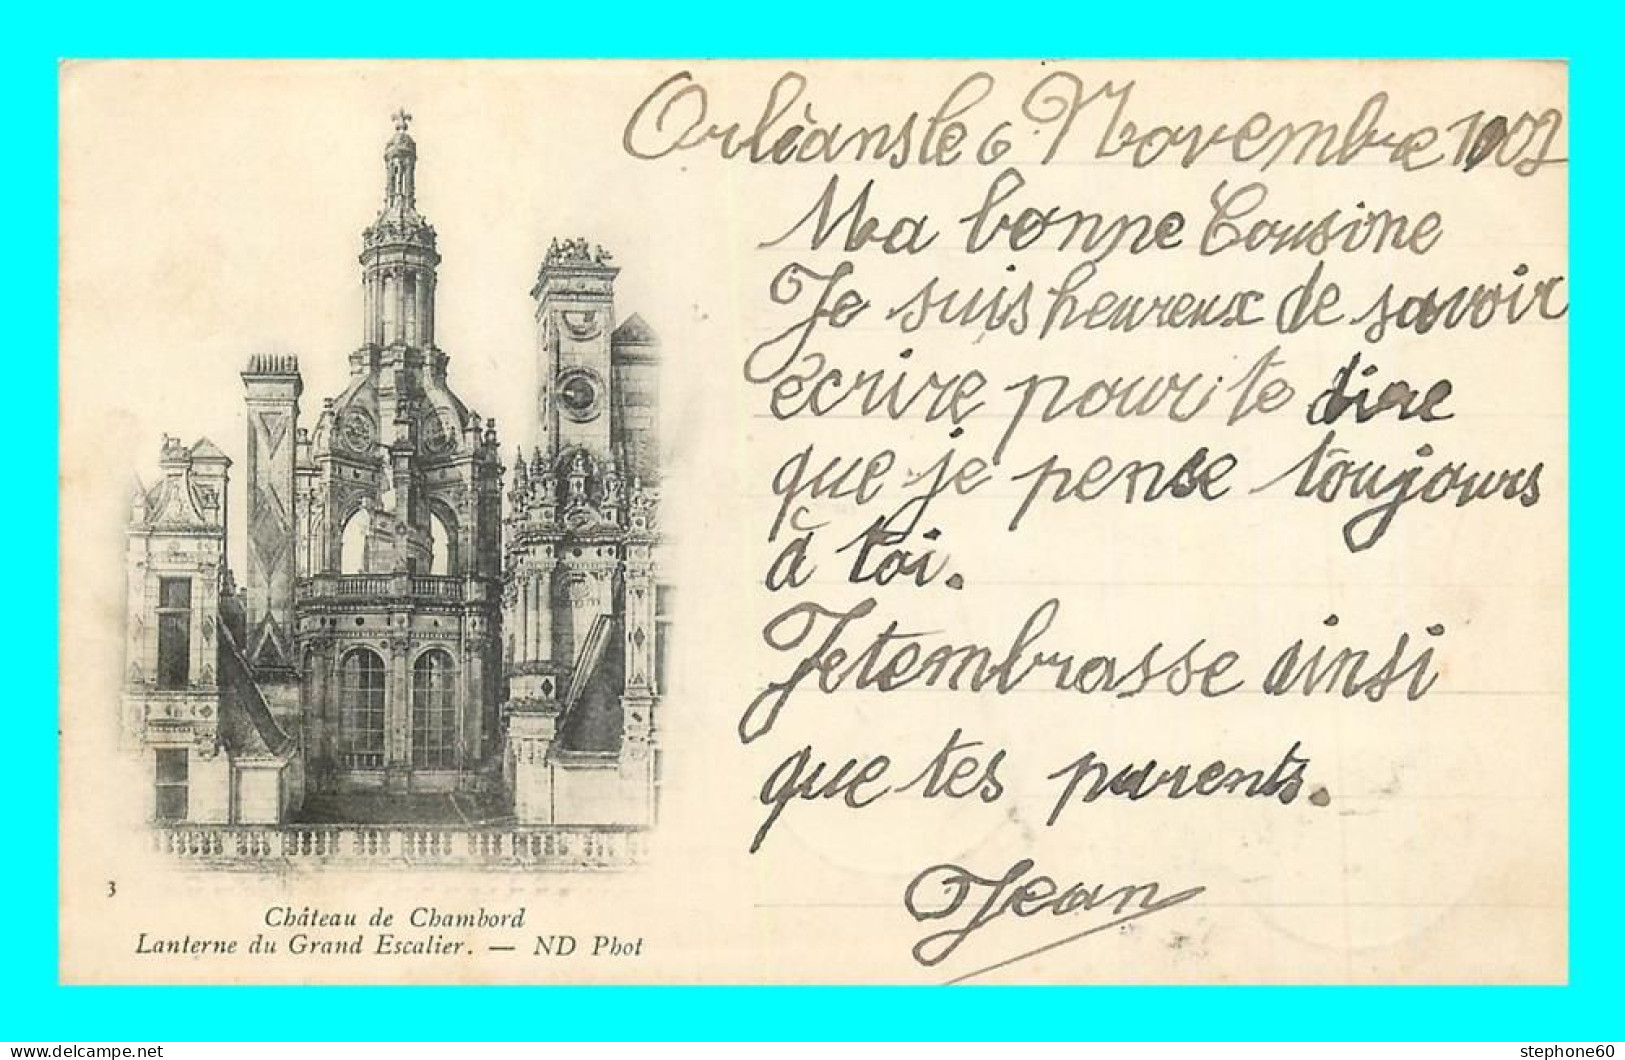 Orléans le 6 Novembre 1902
Ma bonne Cousine
Je suis heureux de savoir
écrire pour te dire
que je pense toujours
à toi.
Je tembrasse ainsi
que tes parents.
Jean
3
Château de Chambord
Lanterne du Grand Escalier. — ND Phot
delcampe.net
stephone60